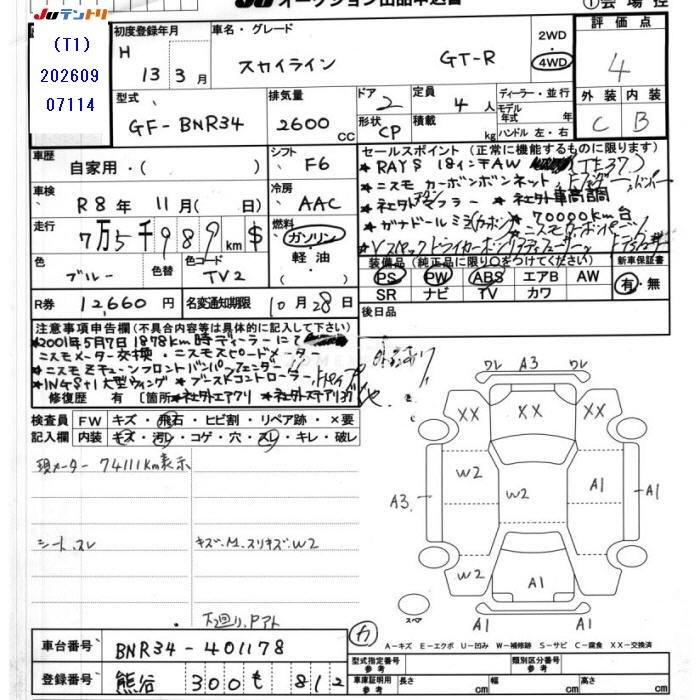 JU テントリ
JU オークション出品申込書
① 会 場 控
(T1)
202609
07114
初度登録年月
H 13年 3月
車名・グレード
スカイライン GT-R
2WD
4WD
評価点
4
型式
GF-BNR34
排気量
2600 CC
ドア 2
形状 CP
定員 4 人
積載 kg
ディーラー・並行
モデル年式 年
ハンドル 左・右
外装 内装
C B
車歴
自家用・( )
シフト F6
車検
R8年 11月( 日)
冷房 AAC
走行
7万5千989km $
燃料
ガソリン
軽油
( )
色 ブルー
色替
色コード TV2
R券 12,660円
名変通知期限 10月28日
セールスポイント(正常に機能するものに限ります)
★RAYS 18インチAW (TE37)
★ニスモ カーボンボンネット
★社外マフラー ★社外車高調
★ガナドールミラー(カーボン) 70000km台
装備品(純正品に限り○をつけてください)
PS PW ABS エアB AW
SR ナビ TV カワ
新車保証書
有・無
後日品
注意事項申告欄(不具合含等は具体的に記入して下さい)
★2001年5月7日1878km時ディーラーにて
ニスモメーター交換・ニスモスピードメーター
★ニスモ Zチューンフロントバンパ フェンダー
★INGS+1 大型ウィング ★ブーストコントローラー
修復歴 有 [箇所 ★社外エアクリ ★社外ステアリング
検査員記入欄
FW キズ・飛石・ヒビ割・リペア跡・×要
内装 キズ・汚レ・コゲ・穴・スレ・キレ・破レ
現メーター 74111km表示
シートスレ
キズ.M.スリキズ.W2
下廻り.Pアト
ワレ A3 ワレ
XX XX XX
W2 W2 A1
A3 A1
W2 A1
A1 A1
スペア
カ
A-キズ E-エクボ U-凹み W-補修跡 S-サビ C-腐食 XX-交換済
車台番号 BNR34-401178
登録番号 熊谷 300 も 812
型式指定番号 参考
類別区分番号 参考
車庫証明用 参考
長さ cm 幅 cm 高さ cm